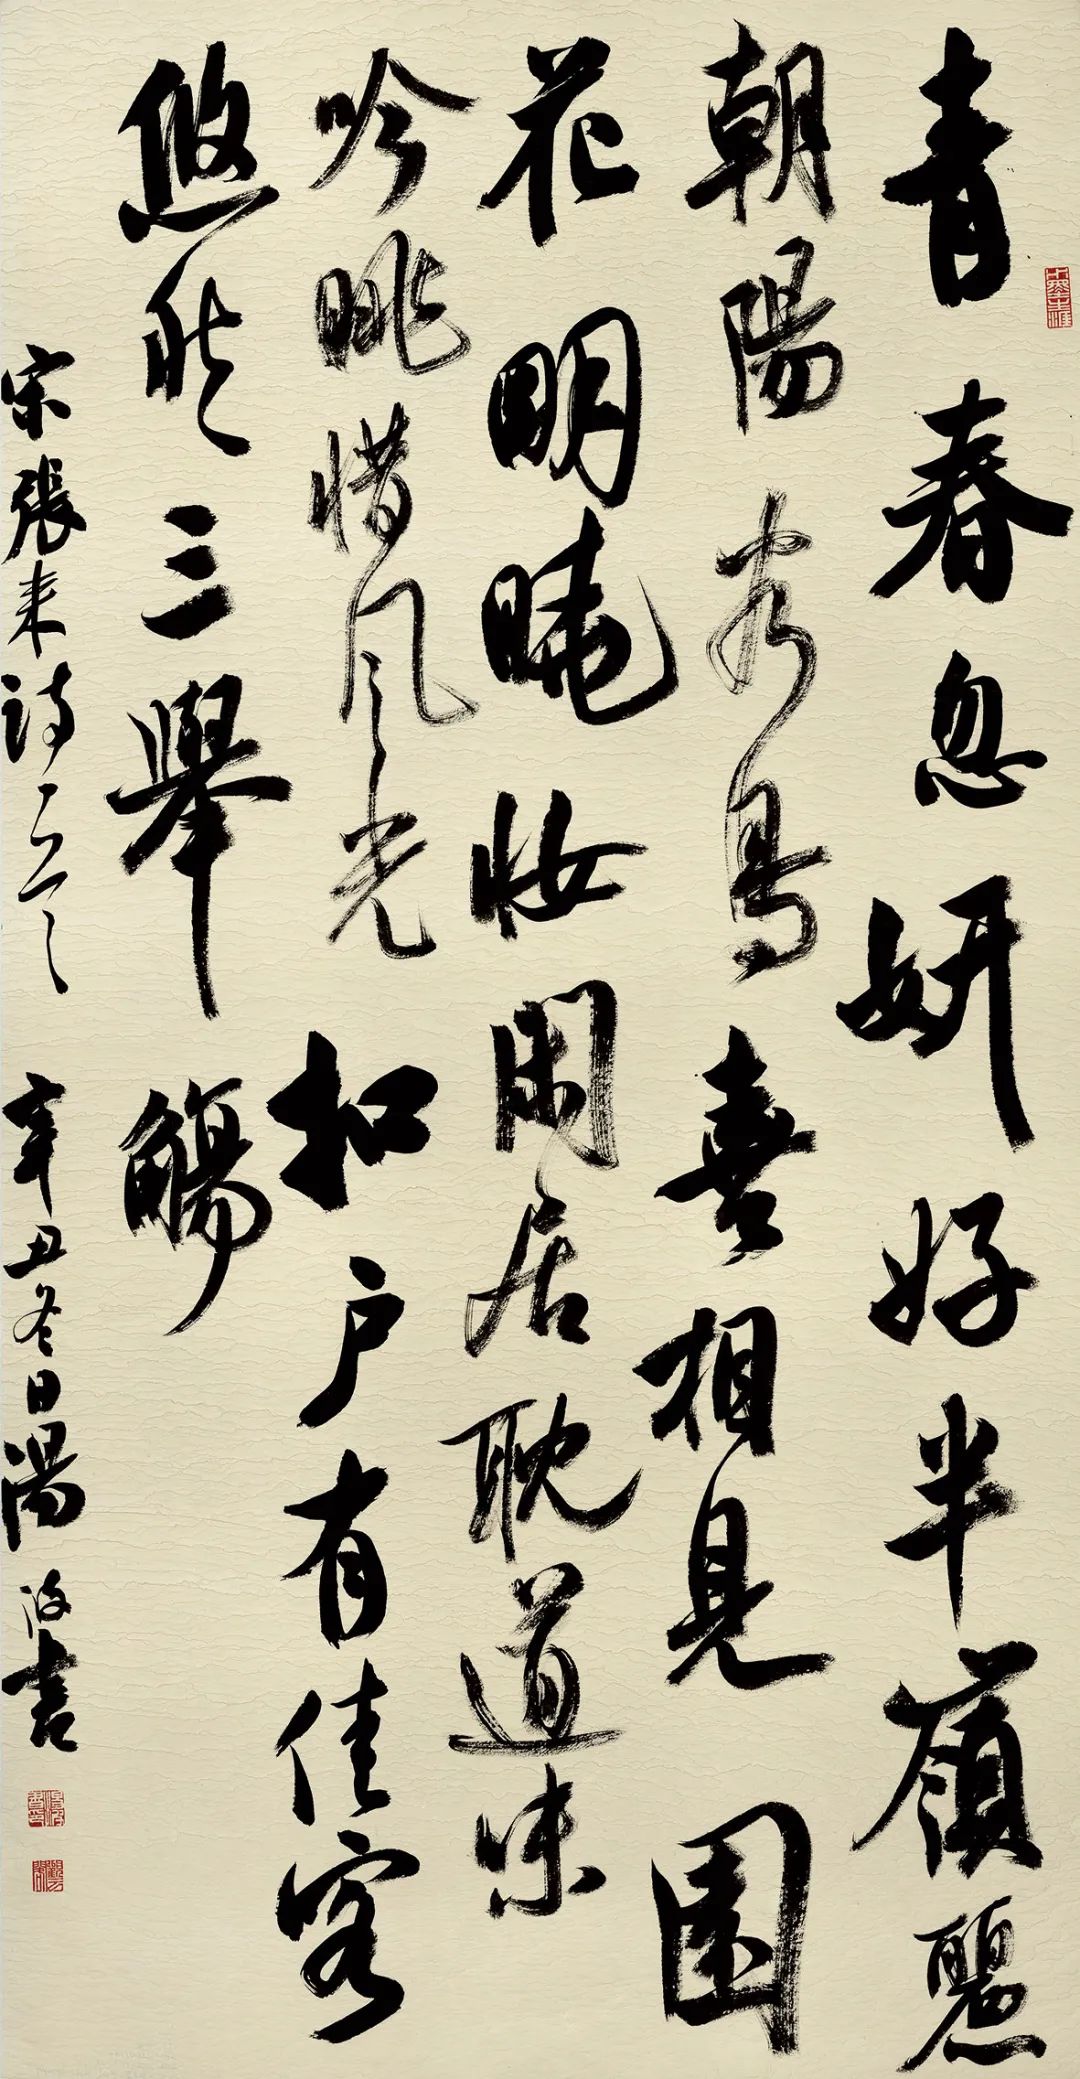 青春忽妍好半嶺懸
朝陽鳥喜相見園
花明曉妝閑居耽道味
吟眺惜風光扣户有佳客
悠然三舉觴
宋張耒詩一首 辛丑冬日湯書